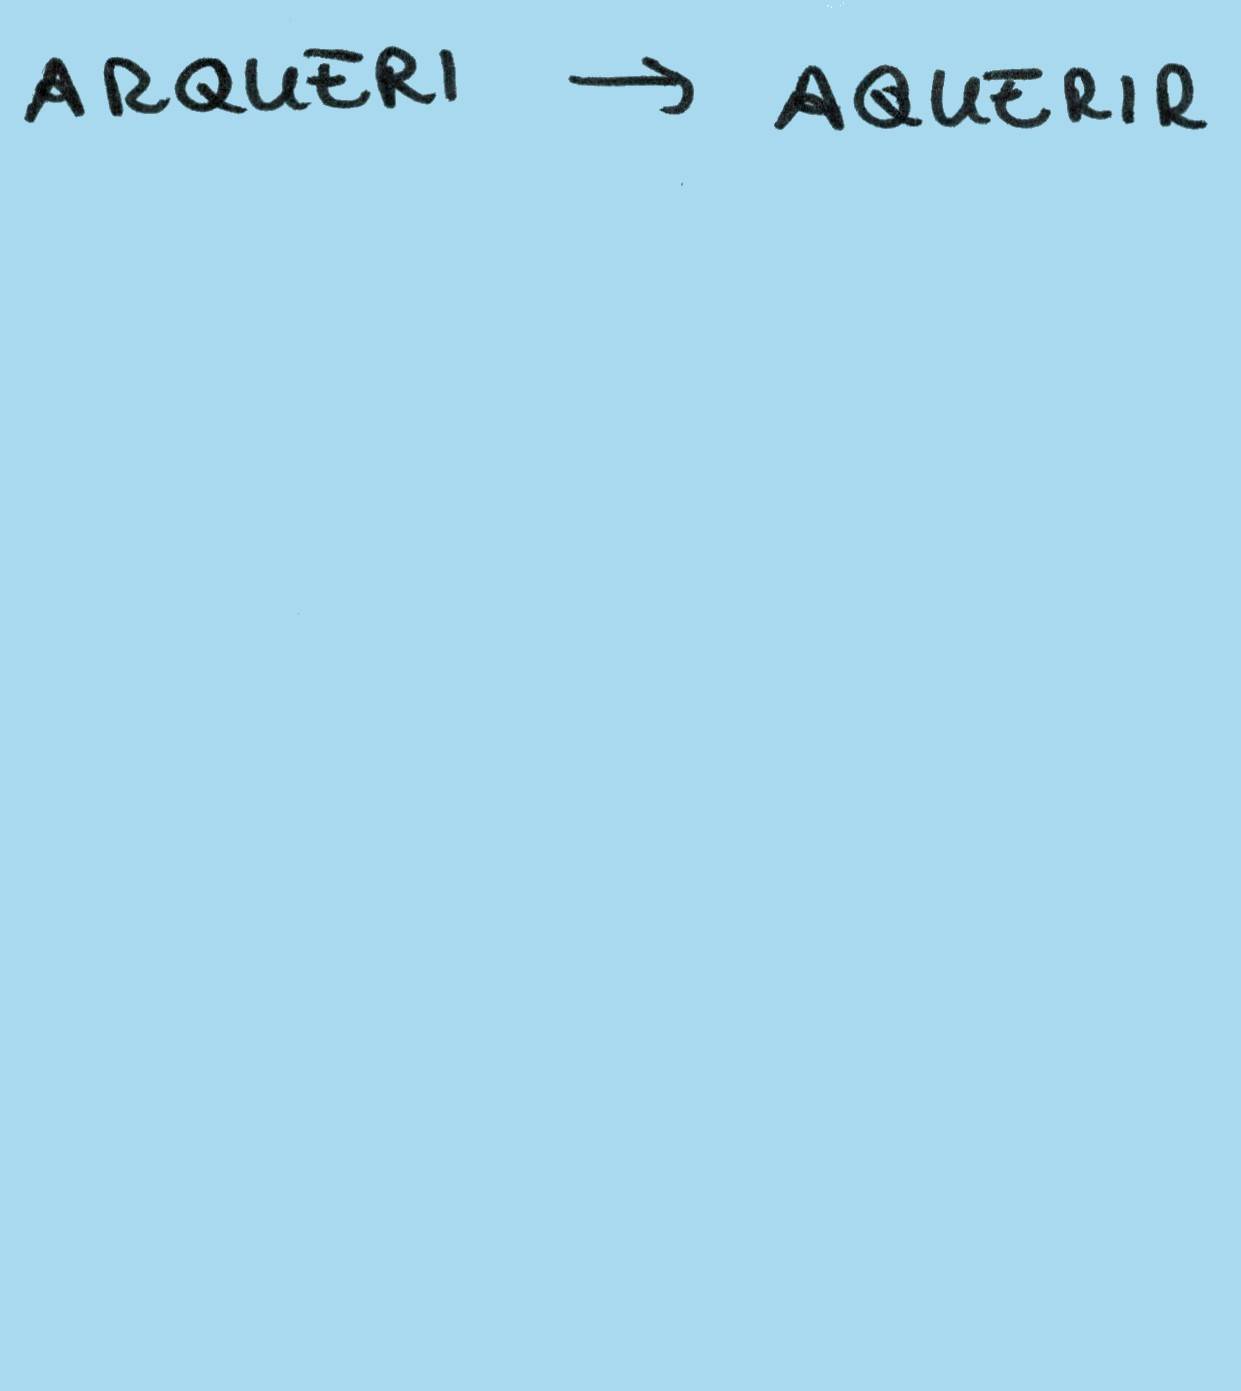 ARQUERI → AQUERIR